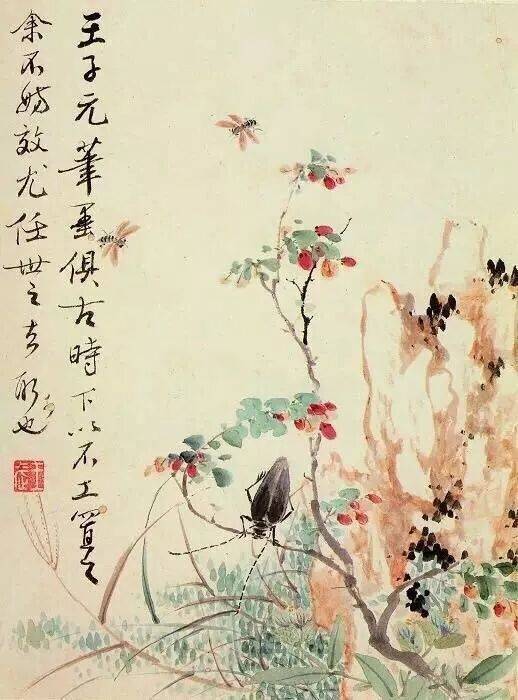 王子元筆墨俱古時下以不工置之
余不妨效尤任世之去取可也